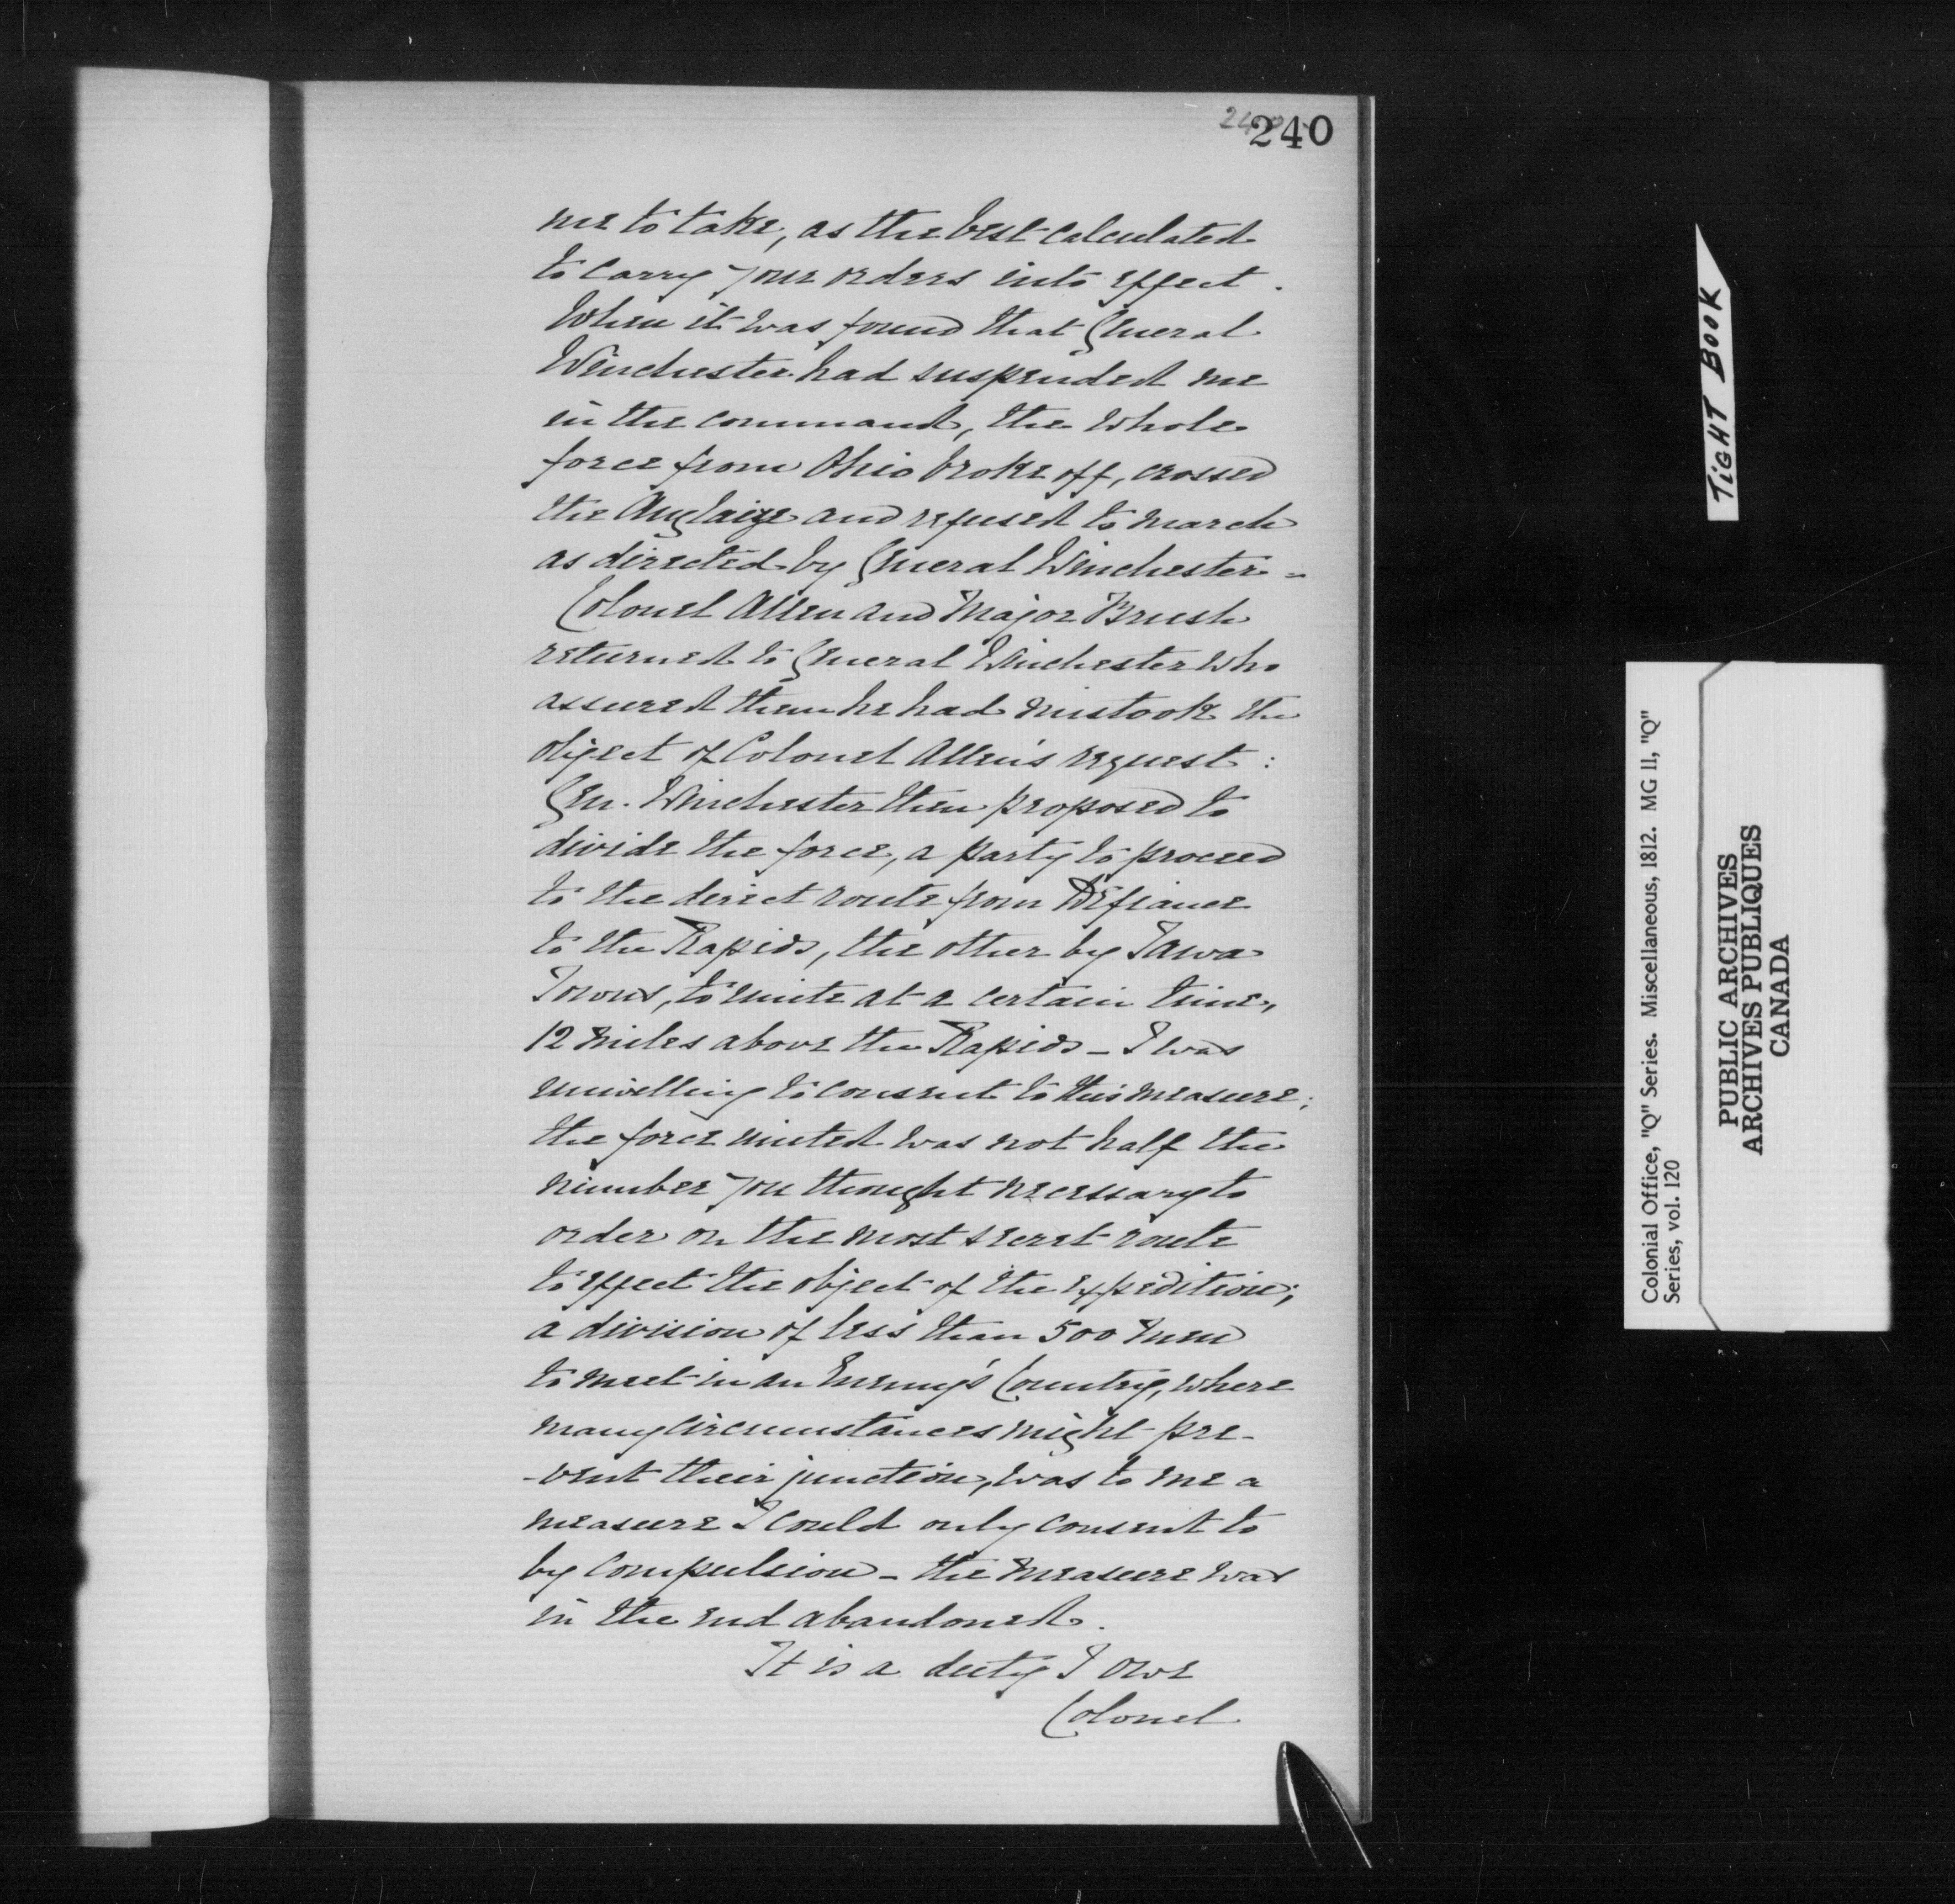 240
me to take, as the best calculated
to carry your orders into effect.
When it was found that General
Winchester had suspended me
in the command, the whole
force from Ohio broke off, crossed
the Auglaize and refused to march
as directed by General Winchester -
Colonel Allen and Major Brush
returned to General Winchester who
assured them he had mistook the
object of Colonel Allen's request:
Gen. Winchester then proposed to
divide the force, a party to proceed
to the direct route from Defiance
to the Rapids, the other by Tawa
Towns, to unite at a certain time,
12 miles above the Rapids - I was
unwilling to consent to this measure;
the force united was not half the
number you thought necessary to
order on the most secret route
to effect the object of the expedition;
a division of less than 500 men
to meet in an Enemy's Country, where
many circumstances might pre-
-vent their junction, was to me a
measure I could only consent to
by compulsion - the measure was
in the end abandoned.
It is a duty I owe
Colonel
TIGHT BOOK
Colonial Office, "Q" Series. Miscellaneous, 1812. MG 11, "Q"
Series, vol. 120
PUBLIC ARCHIVES
ARCHIVES PUBLIQUES
CANADA